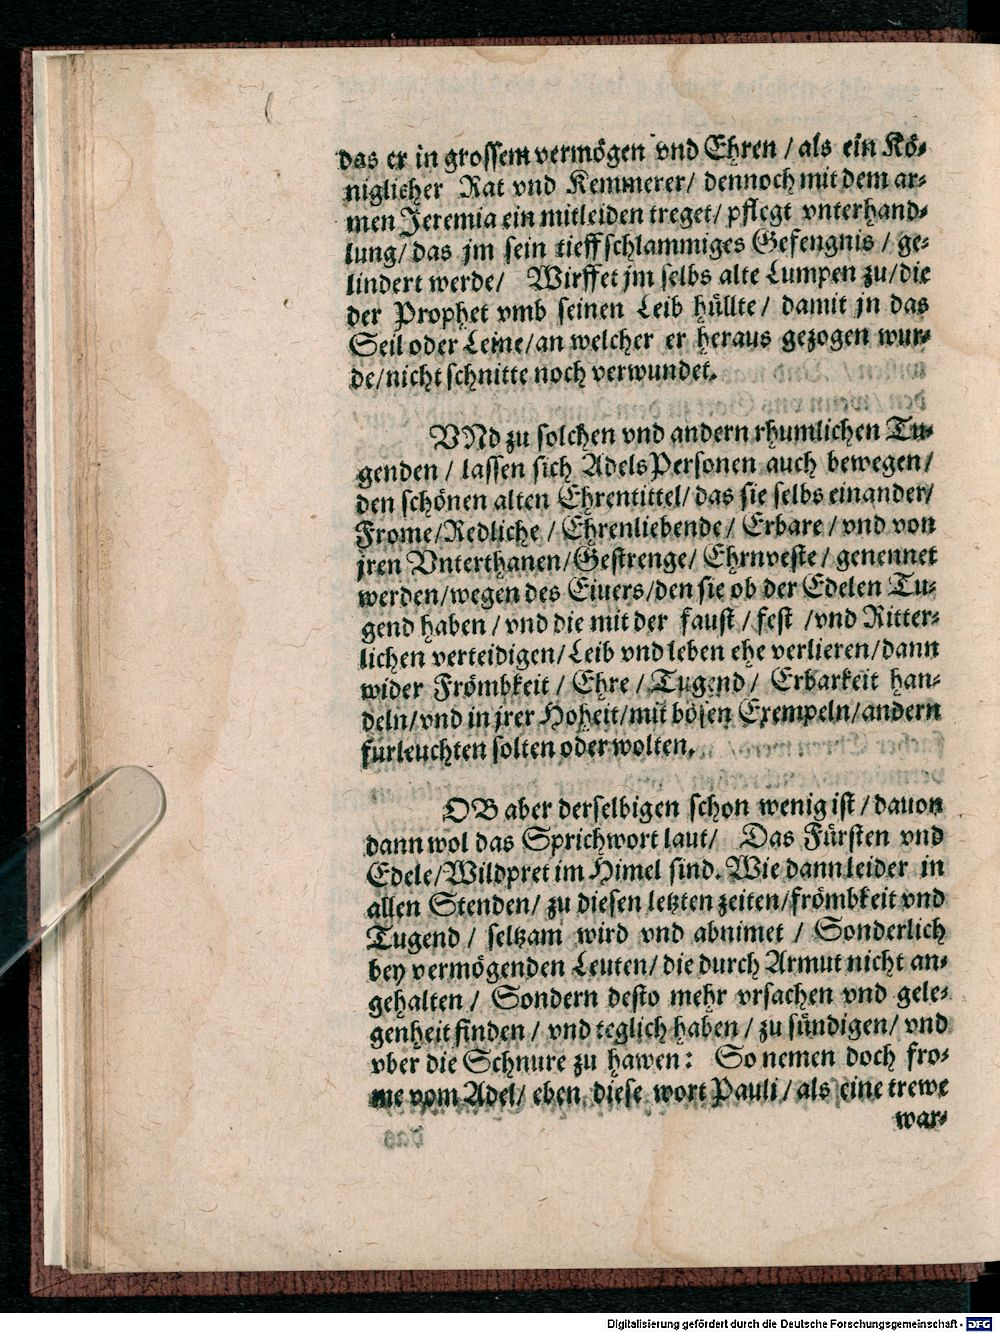 das er in grossem vermögen vnd Ehren / als ein Kö⸗
niglicher Rat vnd Kemmerer/ dennoch mit dem ar⸗
men Jeremia ein mitleiden treget/ pflegt vnterhand⸗
lung/ das jm sein tieff schlammiges Gefengnis / ge⸗
lindert werde/ Wirffet jm selbs alte Lumpen zu/die
der Prophet vmb seinen Leib hüllte/ damit jn das
Seil oder Leine/an welcher er heraus gezogen wur⸗
de/nicht schnitte noch verwundet.
VNd zu solchen vnd andern rhumlichen Tu⸗
genden / lassen sich AdelsPersonen auch bewegen/
den schönen alten Ehrentittel/ das sie selbs einander/
Frome/Redliche / Ehrenliebende/ Erbare / vnd von
jren Vnterthanen/Gestrenge/ Ehrnveste / genennet
werden/wegen des Eiuers/den sie ob der Edelen Tu⸗
gend haben / vnd die mit der faust / fest /vnd Ritter⸗
lichen verteidigen/ Leib vnd leben ehe verlieren/dann
wider Frömbkeit / Ehre / Tugend / Erbarkeit han⸗
deln/vnd in jrer Hoheit/mit bösen Exempeln/andern
furleuchten solten oder wolten.
OB aber derselbigen schon wenig ist / dauon
dann wol das Sprichwort laut/ Das Fürsten vnd
Edele/Wildpret im Himel sind. Wie dann leider in
allen Stenden/ zu diesen letzten zeiten/frömbkeit vnd
Tugend / seltzam wird vnd abnimet / Sonderlich
bey vermögenden Leuten/ die durch Armut nicht an⸗
gehalten / Sondern desto mehr vrsachen vnd gele⸗
genheit finden / vnd teglich haben / zu sündigen/ vnd
vber die Schnure zu hawen: So nemen doch fro⸗
me vom Adel/ eben diese wort Pauli / als eine trewe
war⸗
Digitalisierung gefördert durch die Deutsche Forschungsgemeinschaft - DFG